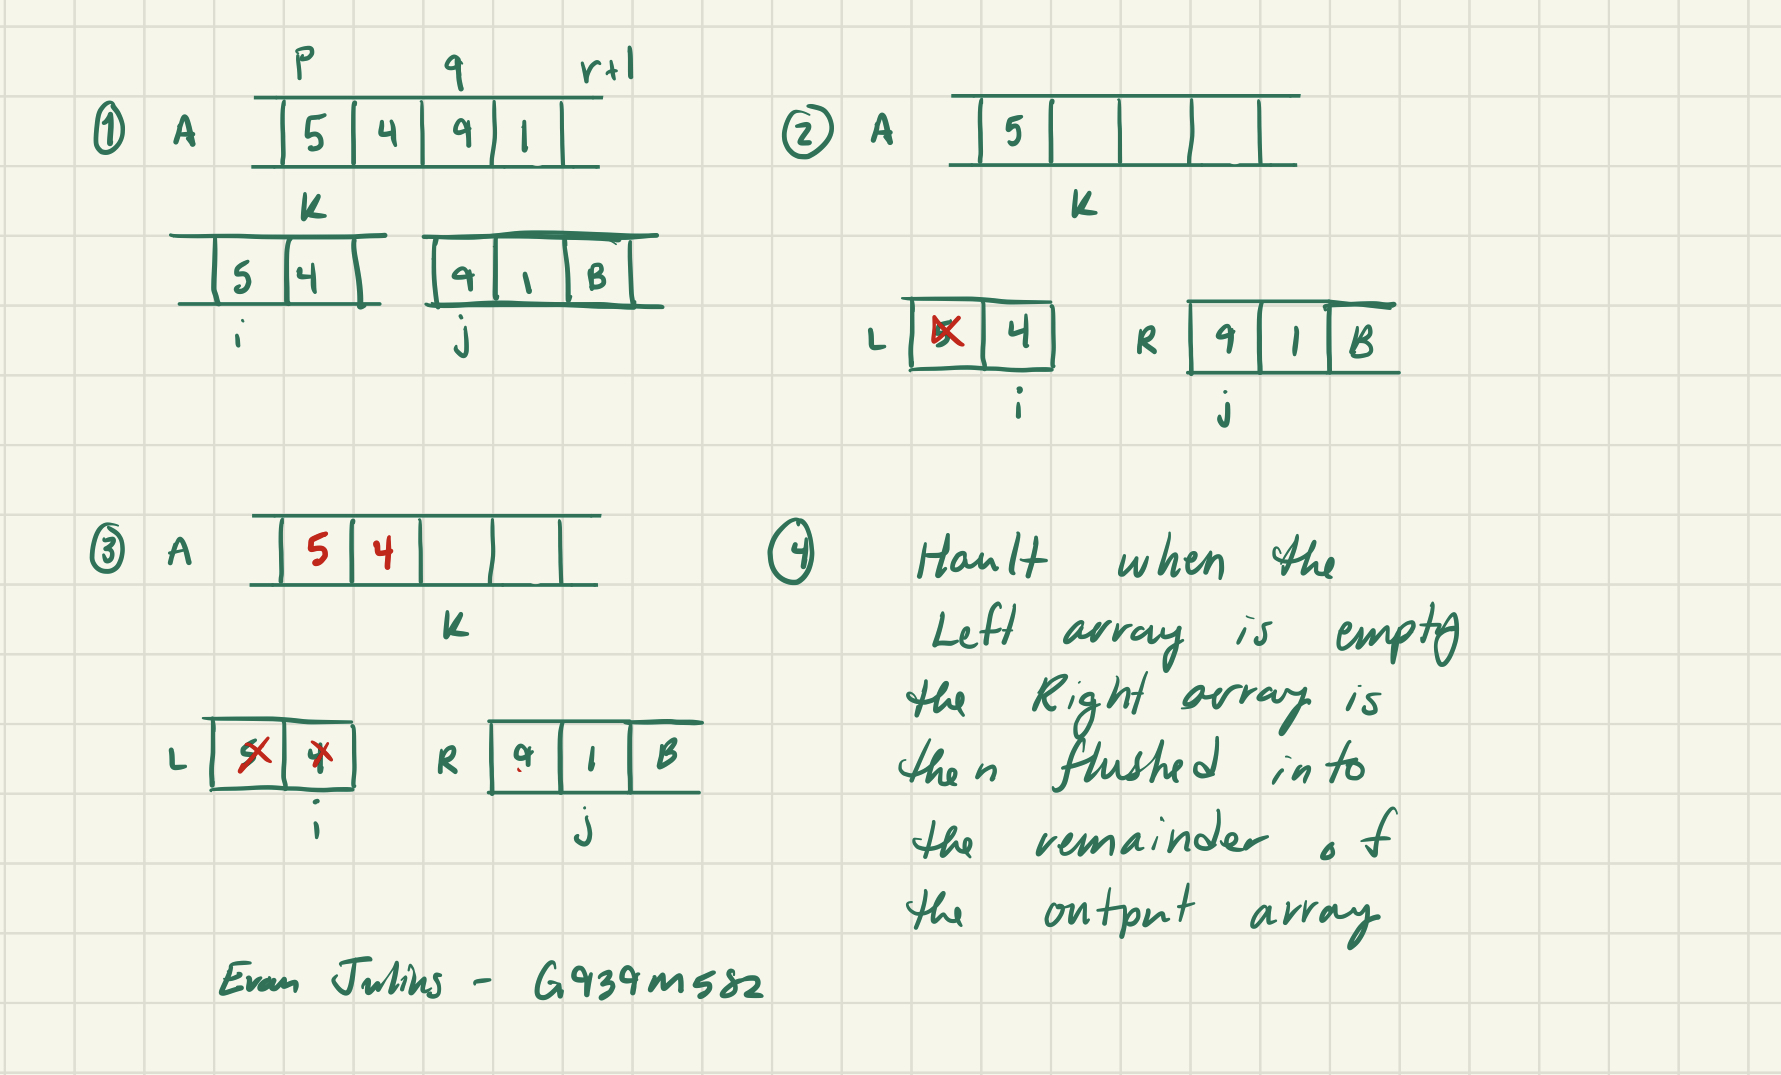 p q r+1
① A 5 4 9 1
K
5 4 9 1 B
i j
② A 5
K
L 5 4 R 9 1 B
i j
③ A 5 4
K
L 5 4 R 9 1 B
i j
④ Hault when the
Left array is empty
the Right array is
then flushed into
the remainder of
the output array
Evan Julius - G939M582